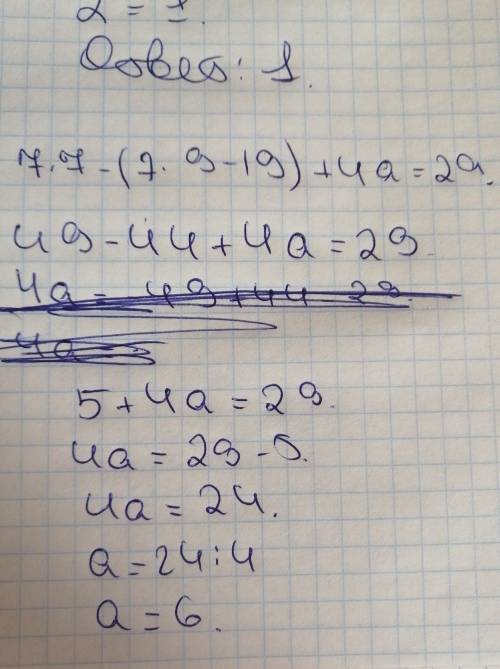 2 = 1.
Ответ: 1.
7.7-(7.9-19)+4a=29.
49-44+4a=29.
4a= 49+44 29.
4a
5+4a=29.
4a=29-5.
4a=24.
a=24:4
a=6.